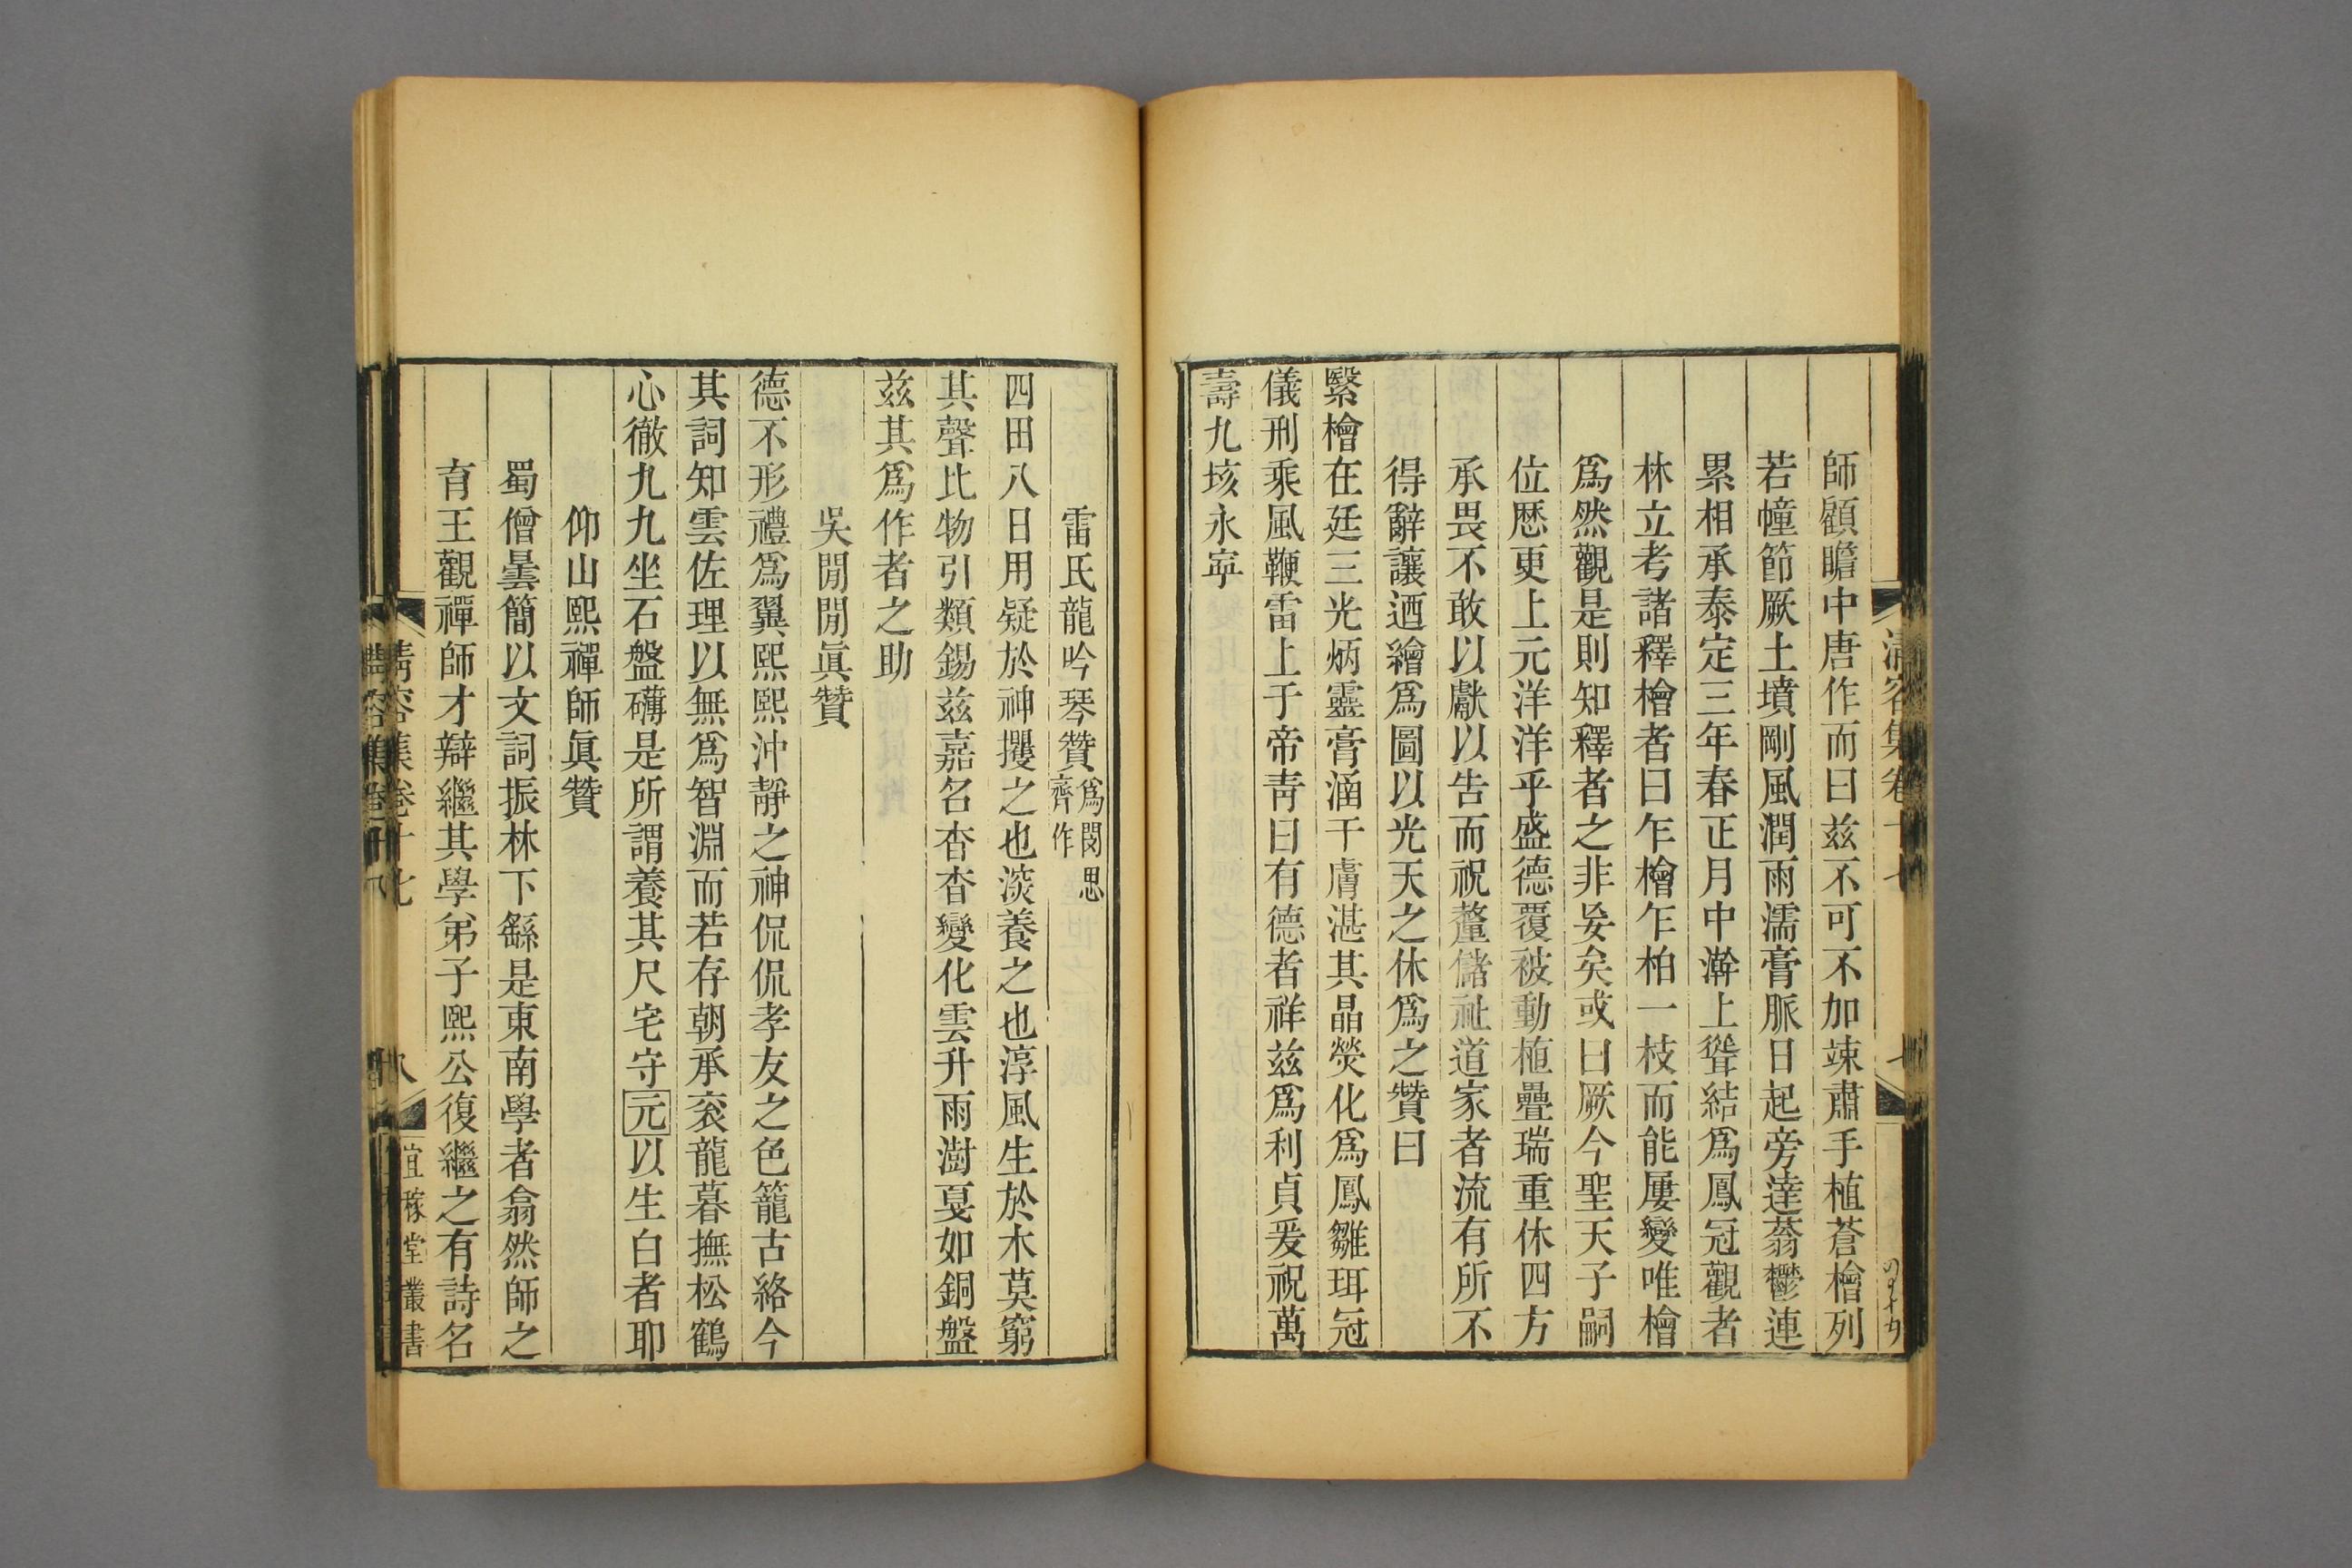 師顧瞻中唐作而曰兹不可不加竦肅手植蒼檜列
若幢節厥土墳剛風潤雨濡膏脈日起旁達蓊鬱連
累相承泰定三年春正月中澣上聳結爲鳳冠觀者
林立考諸釋檜者曰乍檜乍柏一枝而能屢變唯檜
爲然觀是則知釋者之非妄矣或曰厥今聖天子嗣
位厯更上元洋洋乎盛德覆被動植疊瑞重休四方
承畏不敢以獻以告而祝釐儲祉道家者流有所不
得辭讓迺繪爲圖以光天之休爲之贊曰
緊檜在廷三光炳靈膏涵干膚湛其晶熒化爲鳳雛珥冠
儀刑乘風鞭雷上于帝靑曰有德者祥兹爲利貞爰祝萬
壽九垓永寜
雷氏龍吟琴贊爲閔思齊作
四田八日用疑於神攫之也淡養之也淳風生於木莫窮
其聲比物引類錫兹嘉名杳杳變化雲升雨澍戛如銅盤
兹其爲作者之助
吳閒閒眞贊
德不形禮爲翼熙熙沖靜之神侃侃孝友之色籠古絡今
其詞知雲佐理以無爲智淵而若存朝承衮龍暮撫松鶴
心徹九九坐石盤礴是所謂養其尺宅守元以生白者耶
仰山熙禪師眞贊
蜀僧曇簡以文詞振林下繇是東南學者翕然師之
育王觀禪師才辯繼其學弟子熙公復繼之有詩名
清容集卷十七
八
宜稼堂叢書